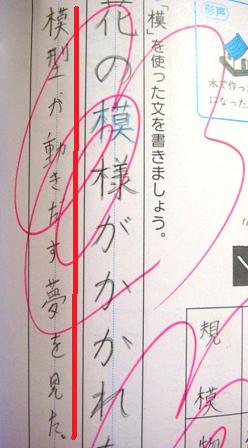 形声
水で作っ
になった
「模」を使った文を書きましょう。
花の模様がかかれ
模型が動きだす夢を見た。
規模
模